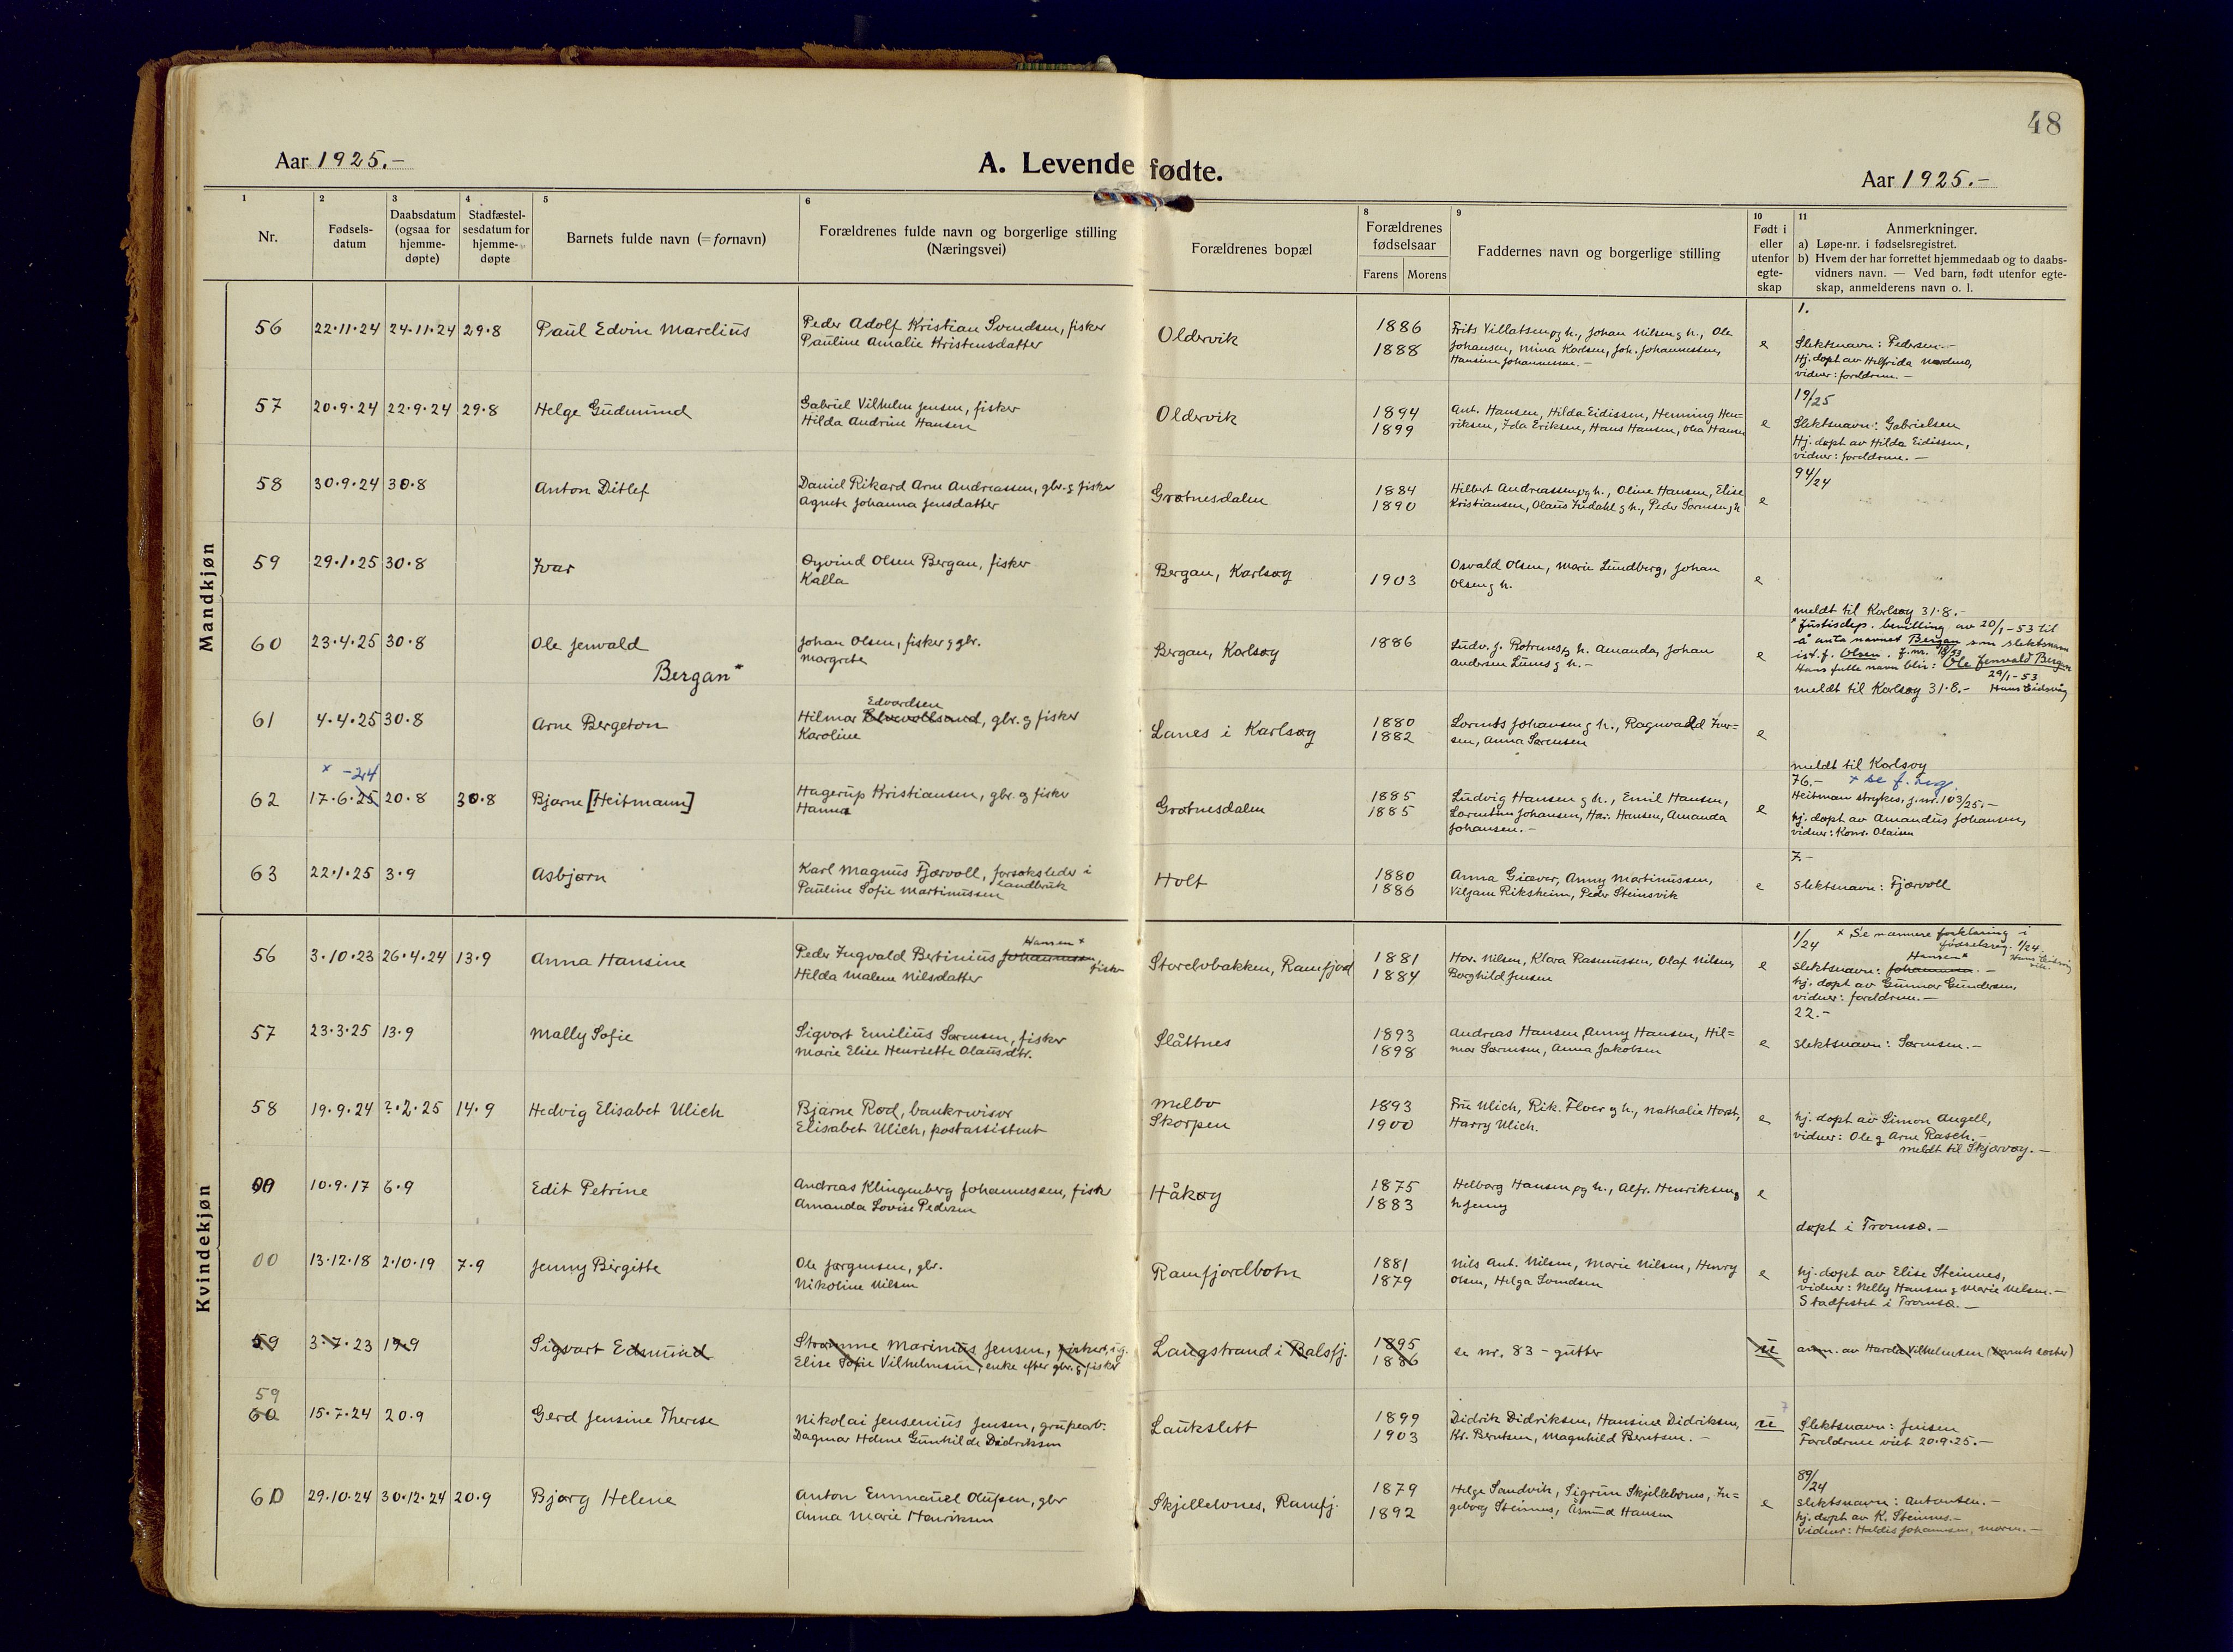 48
Aar 1925.-
A. Levende fødte.
Aar 1925.-
1 2 3 4 5 6 8 9 10 11
Nr.
Fødsels-
datum
Daabsdatum
(ogsaa for
hjemme-
døpte)
Stadfæstel-
sesdatum for
hjemme-
døpte
Barnets fulde navn (=fornavn)
Forældrenes fulde navn og borgerlige stilling
(Næringsvei)
Forældrenes bopæl
Forældrenes
fødselsaar
Farens Morens
Faddernes navn og borgerlige stilling
Født i
eller
utenfor
egte-
skap
Anmerkninger.
a) Løpe-nr. i fødselsregistret.
b) Hvem der har forrettet hjemmedaab og to daabs-
vidners navn. — Ved barn, født utenfor egte-
skap, anmelderens navn o. l.
Mandkjøn
56 22.11.24 24.11.24 29.8 Paul Edvin Marelius
Peder Adolf Kristian Svendsen, fisker
Pauline Amalie Kristensdatter
Oldervik
1886
1888
Frits Villatsen og h., Johan Nilsen g h., Ole
Johansen, Mina Karlsen, Joh. Johannessen,
Hansine Johannessen.-
e
1.
Slektsnavn: Pedersen.-
Hj. døpt av Helfrida Nordmo,
vidner: foreldrene.-
57 20.9.24 22.9.24 29.8 Helge Gudmund
Gabriel Vilhelm Jensen, fisker
Hilda Andrine Hansen
Oldervik
1894
1899
Ant. Hansen, Hilda Eidissen, Henning Hen-
riksen, Ida Eriksen, Hans Hansen, Olea Hansen
e
19/25
Slektsnavn: Gabrielsen
Hj. døpt av Hilda Eidissen,
vidner: foreldrene.-
58 30.9.24 30.8 Anton Ditlef
Daniel Rikard Arne Andreassen, gbr. g fisker
Agnete Johanna Jensdatter
Grøtnesdalen
1884
1890
Hilbert Andreassen og h., Oline Hansen, Elise
Kristiansen, Olaus Indahl g h., Peder Sørensen g h
e
94/24
59 29.1.25 30.8 Ivar
Øyvind Olsen Bergan, fisker
Kalla
Bergan, Karlsøy
1903
Osvald Olsen, Marie Lundberg, Johan
Olsen g h.
e
meldt til Karlsøy 31.8.-
60 23.4.25 30.8 Ole Jenvald
Bergan*
Johan Olsen, fisker g gbr.
Margrete
Bergan, Karlsøy
1886
Ludv. J. Rotnes g h. Amanda, Johan
Andersen Lunes g h.-
e
* Justisdep. bevilling av 20/1-53 til
å anta navnet Bergan som slektsnavn
ist. f. Olsen. J.nr. 18/53
Hans fulle navn blir: Ole Jenvald Bergan
29/1-53
meldt til Karlsøy 31.8.- Hans Eidsvåg
61 4.4.25 30.8 Arne Bergeton
Edvardsen
Hilmar Elvevollsand, gbr. g fisker
Karoline
Lanes i Karlsøy
1880
1882
Lorents Johansen g h., Ragnvald Iver-
sen, Anna Sørensen
e
meldt til Karlsøy
x -24
62 17.6.25 20.8 30.8 Bjarne [Heitmann]
Hagerup Kristiansen, gbr. g fisker
Hanna
Grøtnesdalen
1885
1885
Ludvig Hansen g h., Emil Hansen,
Lorentine Johansen, Har. Hansen, Amanda
Johansen.-
e
76.- x se f. reg.
Heitman strykes, j.nr. 103/25.-
hj. døpt av Amandus Johansen,
vidner: Konr. Olaisen
63 22.1.25 3.9 Asbjørn
Karl Magnus Fjærvoll, forsøksleder i
landbruk
Pauline Sofie Martinussen
Holt
1880
1886
Anna Giæver, Anny Martinussen,
Viljam Riksheim, Peder Steinsvik
e
7.-
slektsnavn: Fjærvoll
Kvindekjøn
56 3.10.23 26.4.24 13.9 Anna Hansine
Hansen x
Peder Ingvald Bertinius Johannessen
fisker
Hilda Malene Nilsdatter
Storelvbakken, Ramfjord
1881
1884
Har. Nilsen, Klara Rasmussen, Olaf Nilsen,
Borghild Jensen
e
1/24 x Se nærmere forklaring i
fødselsreg. 1/24.
Hansen x
slektsnavn: Johannessen.-
hj. døpt av Gunnar Gundersen,
vidner: foreldrene.-
57 23.3.25 13.9 Mally Sofie
Sigvart Emilius Sørensen, fisker
Marie Elise Henriette Olausdtr.
Slåttnes
1893
1898
Andreas Hansen, Anny Hansen, Hil-
mar Sørensen, Anna Jakobsen
e
22.-
slektsnavn: Sørensen.-
58 19.9.24 ?.2.25 14.9 Hedvig Elisabet Ulich
Bjarne Rod, bankrevisor
Elisabet Ulich, postassistent
Melbo
Skorpen
1893
1900
Fru Ulich, Rik. Floer g h., Nathalie Horst,
Harry Ulich.
e
hj. døpt av Simon Angell,
vidner: Ole g Arne Rasch.-
meldt til Skjærvøy.-
00 10.9.17 6.9 Edit Petrine
Andreas Klingenberg Johannessen, fisker
Amanda Lovise Pedersen
Håkøy
1875
1883
Helborg Hansen og h., Alfr. Henriksen g
h Jenny
e
døpt i Tromsø.-
00 13.12.18 2.10.19 7.9 Jenny Birgitte
Ole Jørgensen, gbr.
Nikoline Nilsen
Ramfjordbotn
1881
1879
Nils Ant. Nilsen, Marie Nilsen, Henry
Olsen, Helga Svendsen
e
hj. døpt av Elise Steinnes,
vidner: Nelly Hansen g Marie Nilsen.-
Stadfestet i Tromsø.-
59 3.7.23 19.9 Sigvart Edmund
Strømme Marinius Jensen, fisker, ug.
Elise Sofie Vilhelmsen, enke efter gbr. g fisker
Langstrand i Balsfj.
1895
1886
se nr. 83 - gutter
u
anm. av Harda Vilhelmsen (barnets søster)
59
60 15.7.24 20.9 Gerd Jensine Therese
Nikolai Jensenius Jensen, grubearb.
Dagmar Helene Gunhilde Didriksen
Laukslett
1899
1903
Didrik Didriksen, Hansine Didriksen,
Kr. Berntsen, Magnhild Berntsen.-
u
Slektsnavn: Jensen
Foreldrene viet 20.9.25.-
60 29.10.24 30.12.24 20.9 Bjørg Helene
Anton Emmanuel Olufsen, gbr
Anna Marie Henriksen
Skjellelvnes, Ramfj.
1879
1892
Helge Sandvik, Sigrun Skjellelvnes, In-
geborg Steinnes, Åsmund Hansen
e
89/24
slektsnavn: Antonsen.-
hj. døpt av K. Steinnes.-
vidner: Haldis Johannesen, moren.-